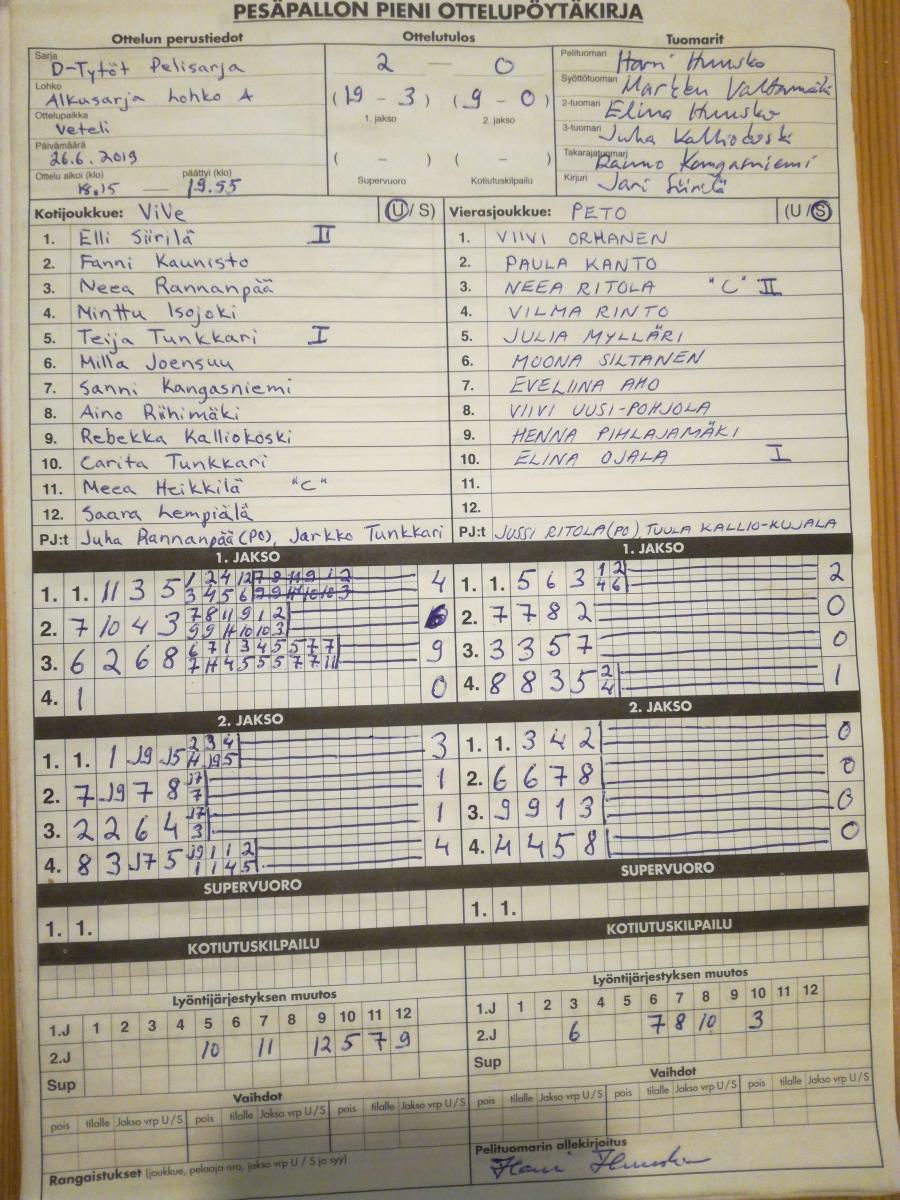 PESÄPALLON PIENI OTTELUPÖYTÄKIRJA
Ottelun perustiedot
Sarja
D-Tytöt Pelisarja
Lohko
Alkusarja Lohko A
Ottelupaikka
Veteli
Päivämäärä
26.6.2019
Ottelu alkoi (klo) päättyi (klo)
18.15 — 19.55
Ottelutulos
2 — 0
(19 - 3) (9 - 0)
1. jakso 2. jakso
( - ) ( - )
Supervuoro Kotiutuskilpailu
Tuomarit
Pelituomari Harri Huusko
Syöttötuomari
2-tuomari Elina Huusko
3-tuomari Juha Kalliokoski
Takarajatuomari Rauno Kangasniemi
Kirjuri Jari Siirilä
Kotijoukkue: ViVe (U/S)
1. Elli Siirilä II
2. Fanni Kaunisto
3. Neea Rannanpää
4. Minttu Isojoki
5. Teija Tunkkari I
6. Milla Joensuu
7. Sanni Kangasniemi
8. Aino Riihimäki
9. Rebekka Kalliokoski
10. Carita Tunkkari
11. Meea Heikkilä "C"
12. Saara Lempiälä
PJ:t Juha Rannanpää (PO), Jarkko Tunkkari
Vierasjoukkue: PETO (U/S)
1. VIIVI ORHANEN
2. PAULA KANTO
3. NEEA RITOLA "C" II
4. VILMA RINTO
5. JULIA MYLLÄRI
6. MOONA SILTANEN
7. EVELIINA AHO
8. VIIVI UUSI-POHJOLA
9. HENNA PIHLAJAMÄKI
10. ELINA OJALA I
11.
12.
PJ:t JUSSI RITOLA (PO), TUULA KALLIO-KUJALA
1. JAKSO
1. 1. 11 3 5 4
2. 7 10 4 3
3. 6 2 6 8 9
4. 1 0
2. JAKSO
1. 1. 1 19 15 2 3 4 3
4 19 5
2. 7 19 7 8 17 1
7
3. 2 2 6 4 17 1
3
4. 8 3 17 5 19 1 1 2 4
1 1 4 5
SUPERVUORO
1. 1.
KOTIUTUSKILPAILU
Lyöntijärjestyksen muutos
1.J 1 2 3 4 5 6 7 8 9 10 11 12
2.J 10 11 12 5 7 9
Sup
Vaihdot
pois tilalle Jakso vrp U/S pois tilalle Jakso vrp U/S
Rangaistukset (joukkue, pelaaja nro, jakso vrp U/S ja syy)
1. JAKSO
1. 1. 5 6 3 1 2 2
4 6
2. 7 7 8 2 0
3. 3 3 5 7 0
4. 8 8 3 5 2 1
4
2. JAKSO
1. 1. 3 4 2 0
2. 6 6 7 8 0
3. 9 9 1 3 0
4. 4 4 5 8 0
SUPERVUORO
1. 1.
KOTIUTUSKILPAILU
Lyöntijärjestyksen muutos
1.J 1 2 3 4 5 6 7 8 9 10 11 12
2.J 6 7 8 10 3
Sup
Vaihdot
pois tilalle Jakso vrp U/S pois tilalle Jakso vrp U/S
Pelituomarin allekirjoitus
Harri Huusko